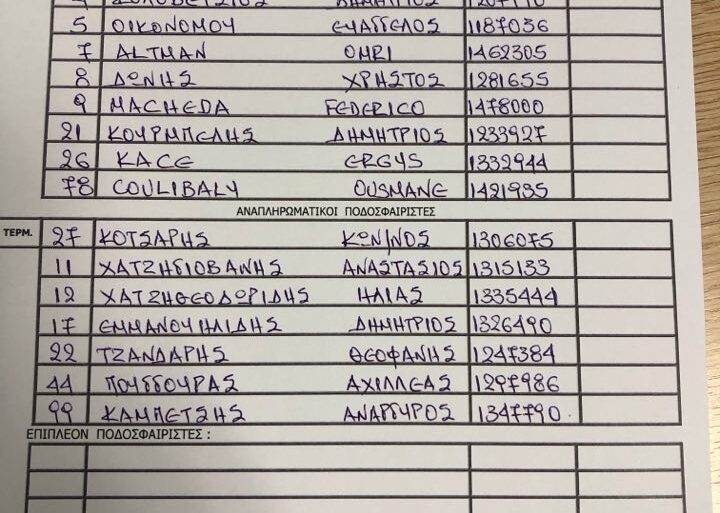 5 ΟΙΚΟΝΟΜΟΥ ΕΥΑΓΓΕΛΟΣ 1187036
7 ALTMAN OMRI 1462305
8 ΔΩΝΗΣ ΧΡΗΣΤΟΣ 1281655
9 MACHEDA FEDERICO 1478000
21 ΚΟΥΡΜΠΕΛΗΣ ΔΗΜΗΤΡΙΟΣ 1233927
26 KACE ERGYS 1332944
78 COULIBALY OUSMANE 1421935
ΑΝΑΠΛΗΡΩΜΑΤΙΚΟΙ ΠΟΔΟΣΦΑΙΡΙΣΤΕΣ
ΤΕΡΜ. 27 ΚΟΤΣΑΡΗΣ ΚΩΝ/ΝΟΣ 1306075
11 ΧΑΤΖΗΓΙΟΒΑΝΗΣ ΑΝΑΣΤΑΣΙΟΣ 1315133
12 ΧΑΤΖΗΘΕΟΔΩΡΙΔΗΣ ΗΛΙΑΣ 1335444
17 ΕΜΜΑΝΟΥΗΛΙΔΗΣ ΔΗΜΗΤΡΙΟΣ 1326490
22 ΤΖΑΝΔΑΡΗΣ ΘΕΟΦΑΝΗΣ 1247384
44 ΠΟΥΓΓΟΥΡΑΣ ΑΧΙΛΛΕΑΣ 1297986
99 ΚΑΜΠΕΤΣΗΣ ΑΝΑΡΓΥΡΟΣ 1347790
ΕΠΙΠΛΕΟΝ ΠΟΔΟΣΦΑΙΡΙΣΤΕΣ :